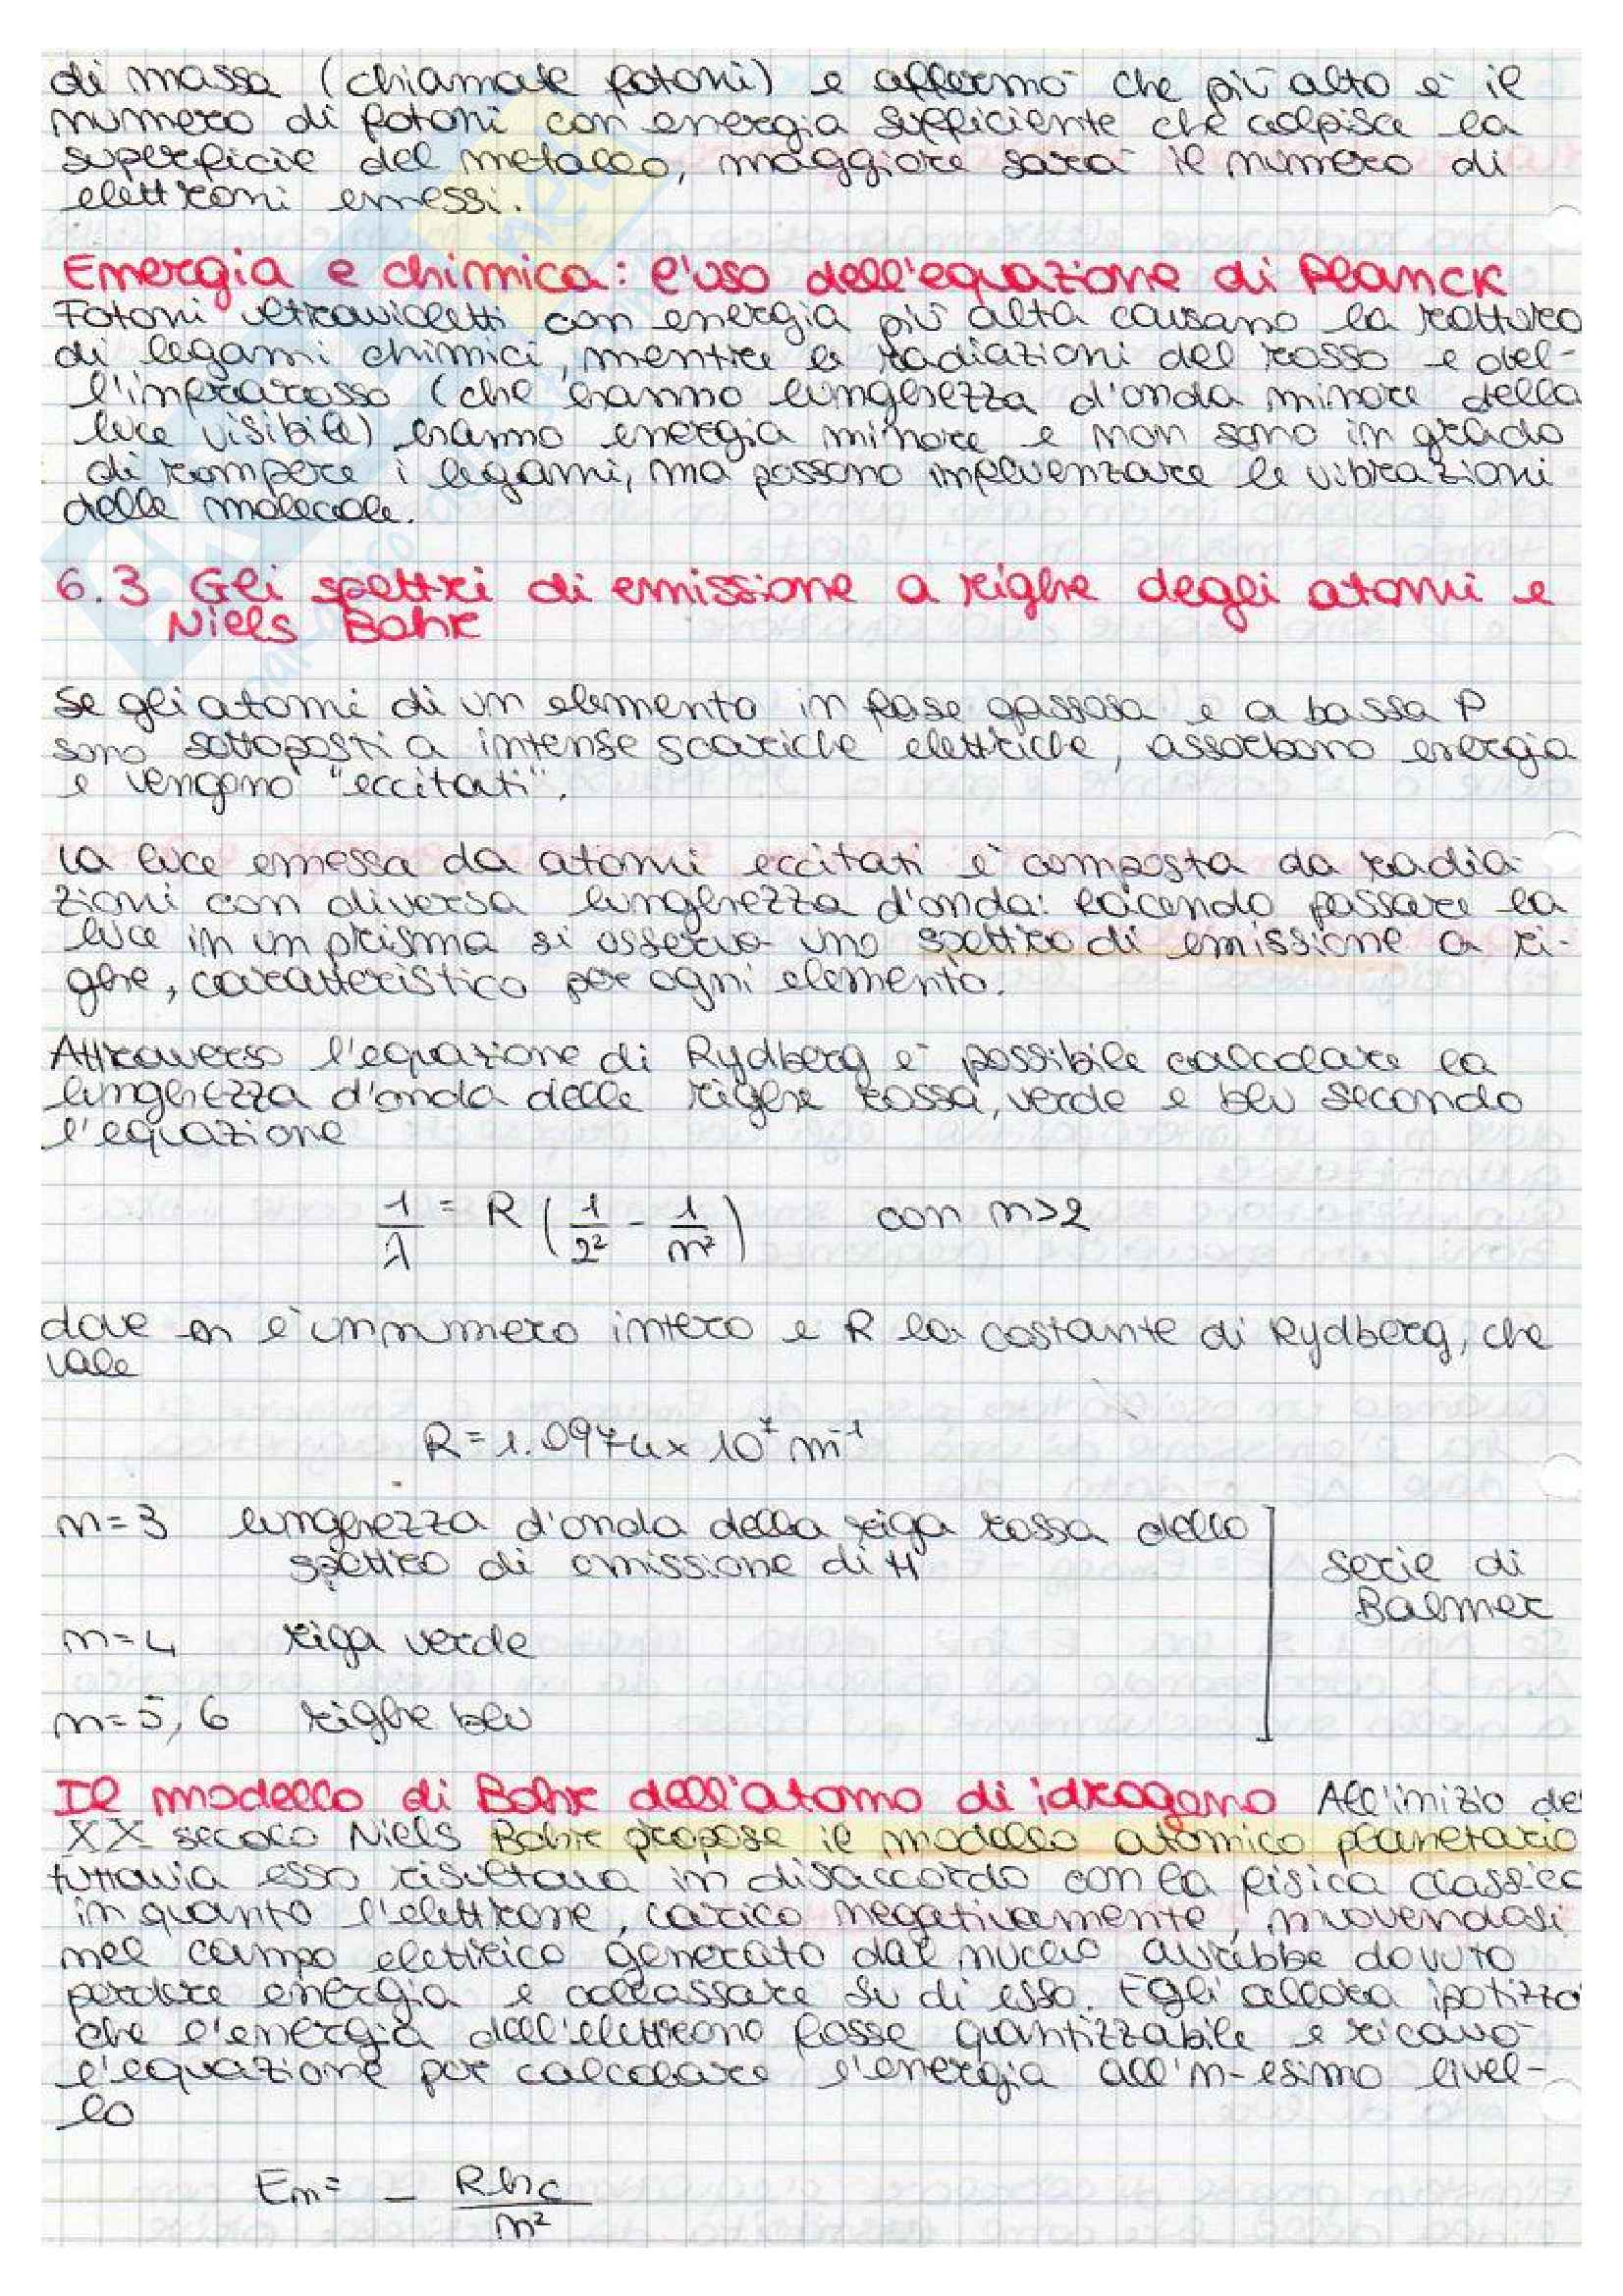 di massa (chiamate fotoni) e affermò che più alto è il
numero di fotoni con energia sufficiente che colpisce la
superficie del metallo, maggiore sarà il numero di
elettroni emessi.
Energia e chimica: l'uso dell'equazione di Planck
Fotoni ultravioletti con energia più alta causano la rottura
di legami chimici, mentre le radiazioni del rosso e del-
l'infrarosso (che hanno lunghezza d'onda minore della
luce visibile) hanno energia minore e non sono in grado
di rompere i legami, ma possono influenzare le vibrazioni
delle molecole.
6.3 Gli spettri di emissione a righe degli atomi e
Niels Bohr
Se gli atomi di un elemento in fase gassosa e a bassa P
sono sottoposti a intense scariche elettriche, assorbono energia
e vengono "eccitati".
La luce emessa da atomi eccitati è composta da radia-
zioni con diversa lunghezza d'onda: facendo passare la
luce in un prisma si osserva uno spettro di emissione a ri-
ghe, caratteristico per ogni elemento.
Attraverso l'equazione di Rydberg è possibile calcolare la
lunghezza d'onda delle righe rossa, verde e blu secondo
l'equazione
1/λ = R (1/2² - 1/n²) con n>2
dove n è un numero intero e R la costante di Rydberg, che
vale
R = 1.0974 x 10⁷ m⁻¹
n=3 lunghezza d'onda della riga rossa dello
spettro di emissione di H
serie di
Balmer
n=4 riga verde
n=5, 6 righe blu
Il modello di Bohr dell'atomo di idrogeno All'inizio de
XX secolo Niels Bohr propose il modello atomico planetario
tuttavia esso risultava in disaccordo con la fisica classic
in quanto l'elettrone, carico negativamente, muovendosi
nel campo elettrico generato dal nucleo avrebbe dovuto
perdere energia e collassare su di esso. Egli allora ipotizzò
che l'energia dell'elettrone fosse quantizzabile e ricavò
l'equazione per calcolare l'energia all'n-esimo livel-
lo
En = - Rhc/n²